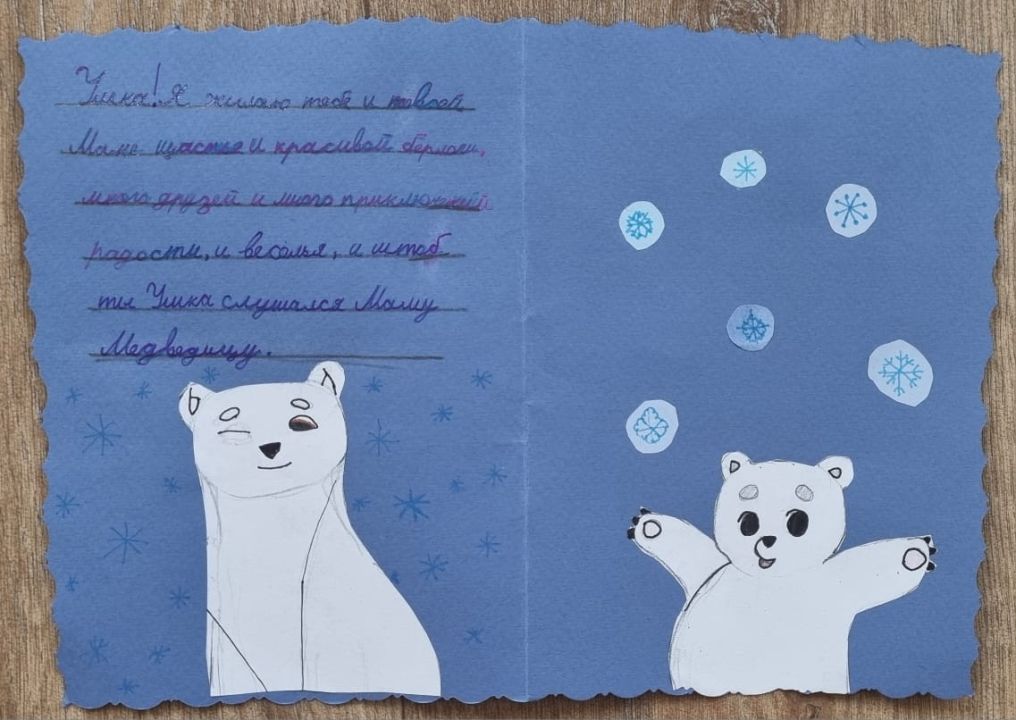 Умка! Я жилаю тебе и твоей
Маме щастье и красивой берлоги,
много друзей и много приключений
радости, и веселья, и штоб
ты Умка слушался Маму
Медведицу.